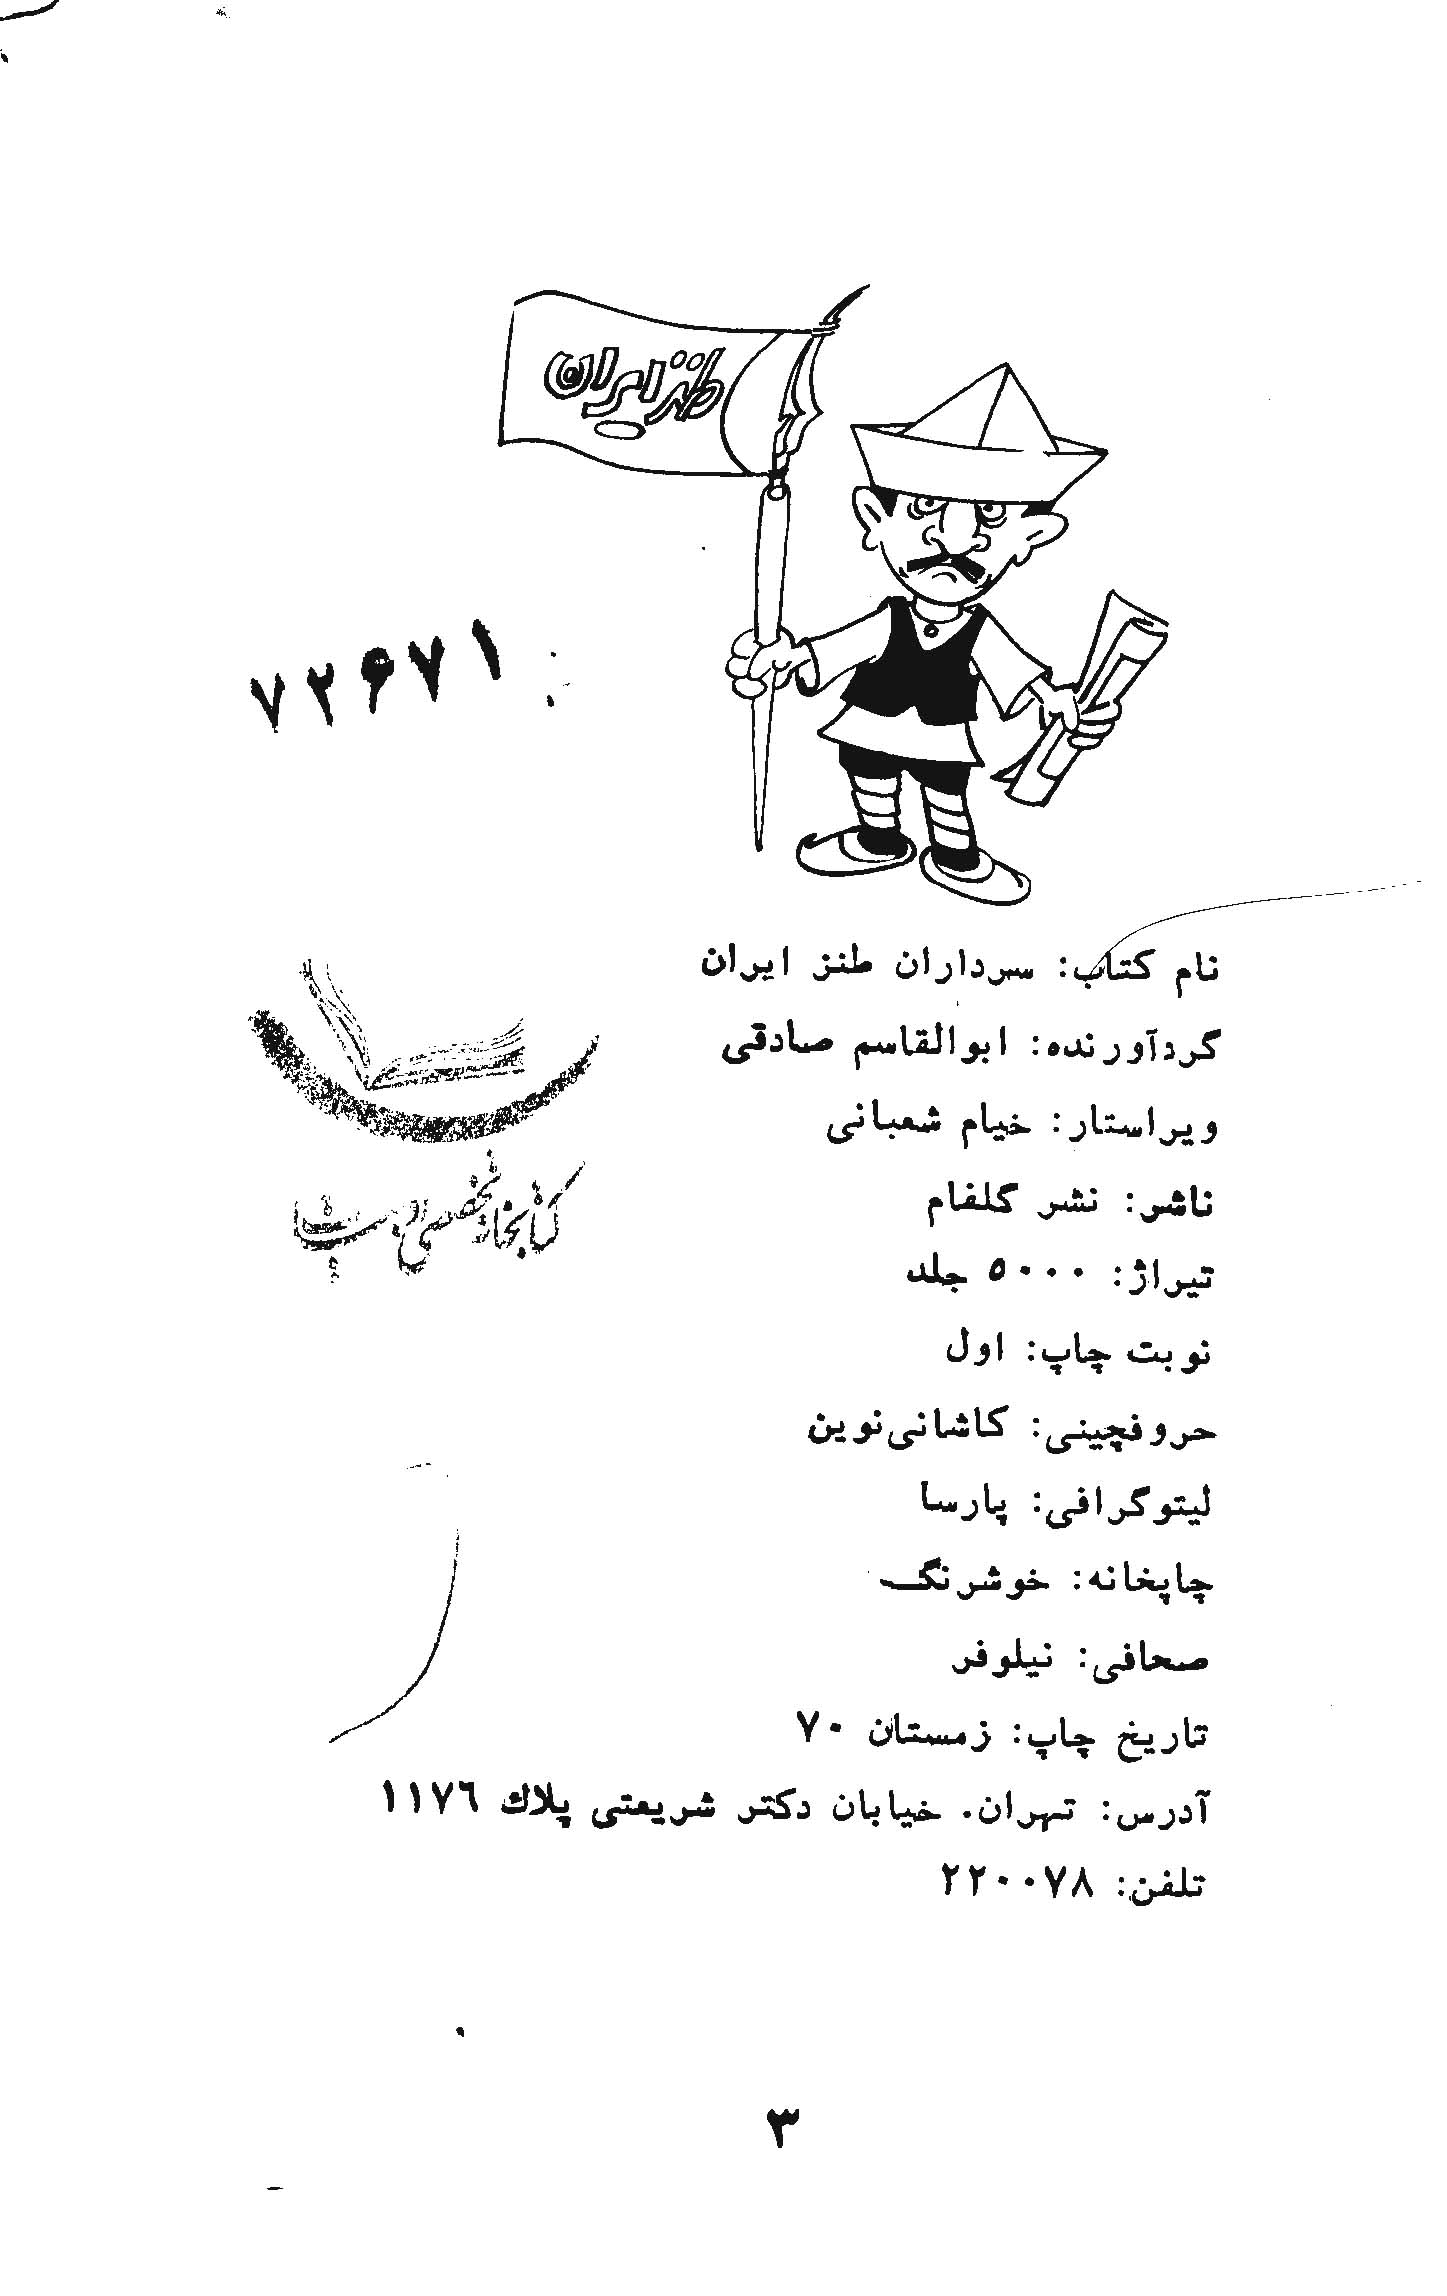 طنز ایران
۷۲۶۷۱
نام کتاب: سرداران طنز ایران
گردآورنده: ابوالقاسم صادقی
ویراستار: خیام شعبانی
ناشر: نشر گلفام
تیراژ: ۵۰۰۰ جلد
نوبت چاپ: اول
حروفچینی: کاشانی‌نوین
لیتوگرافی: پارسا
چاپخانه: خوشرنگ
صحافی: نیلوفر
تاریخ چاپ: زمستان ۷۰
آدرس: تهران. خیابان دکتر شریعتی پلاك ۱۱۷٦
تلفن: ۲۲۰۰۷۸
کتابخانه تخصصی ادبیات
۳